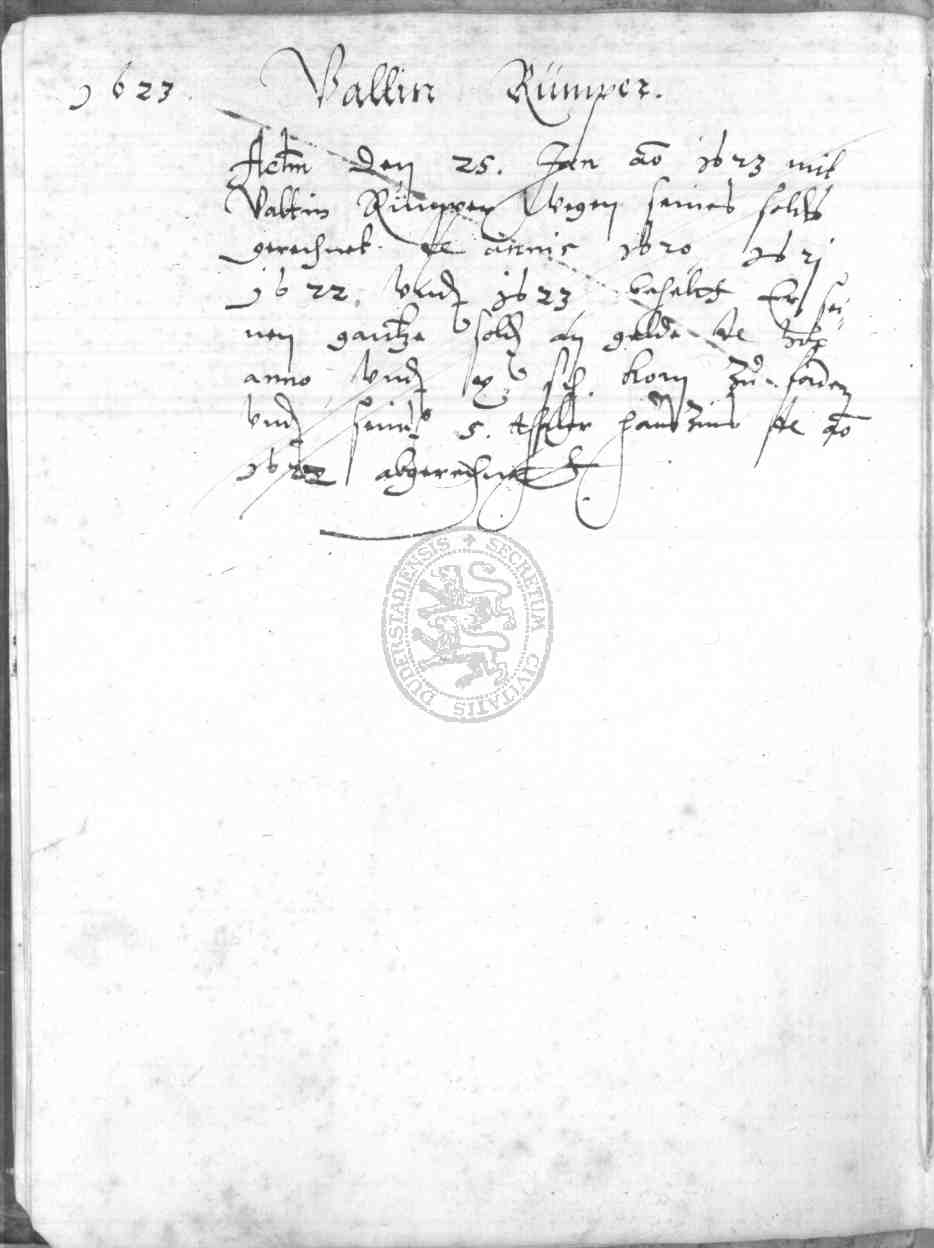 1623. Valtin Rümper.
Actum den 25. Jan ao 1623 mit
Valtin Rümper wegen seines soldts
gerechnet de annis 1620 1621
1622. vnd 1623 behelt Er sei-
nen gantze sold an gelde de
anno vnd sch. korn zu fodern
vnd seind 5. thaler hauszins de ao
1622 abgerechnet
SECRETUM CIVITATIS DUDERSTADIENSIS